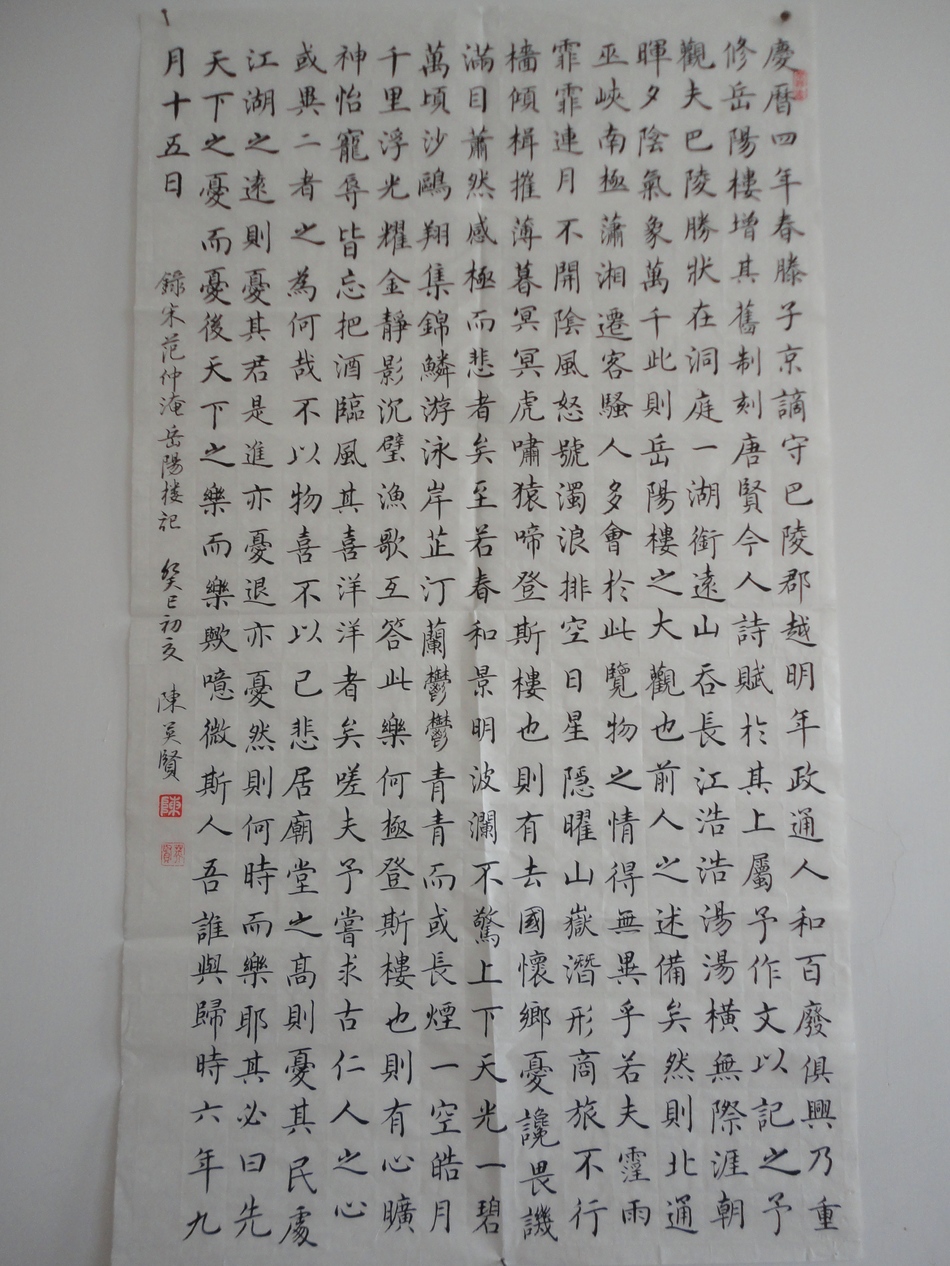 慶曆四年春滕子京謫守巴陵郡越明年政通人和百廢俱興乃重
修岳陽樓增其舊制刻唐賢今人詩賦於其上屬予作文以記之予
觀夫巴陵勝狀在洞庭一湖銜遠山吞長江浩浩湯湯橫無際涯朝
暉夕陰氣象萬千此則岳陽樓之大觀也前人之述備矣然則北通
巫峽南極瀟湘遷客騷人多會於此覽物之情得無異乎若夫霪雨
霏霏連月不開陰風怒號濁浪排空日星隱曜山嶽潛形商旅不行
檣傾楫摧薄暮冥冥虎嘯猿啼登斯樓也則有去國懷鄉憂讒畏譏
滿目蕭然感極而悲者矣至若春和景明波瀾不驚上下天光一碧
萬頃沙鷗翔集錦鱗游泳岸芷汀蘭鬱鬱青青而或長煙一空皓月
千里浮光耀金靜影沉璧漁歌互答此樂何極登斯樓也則有心曠
神怡寵辱皆忘把酒臨風其喜洋洋者矣嗟夫予嘗求古仁人之心
或異二者之為何哉不以物喜不以己悲居廟堂之高則憂其民處
江湖之遠則憂其君是進亦憂退亦憂然則何時而樂耶其必曰先
天下之憂而憂後天下之樂而樂歟噫微斯人吾誰與歸時六年九
月十五日 錄宋范仲淹岳陽楼記 癸巳初夏 陳英賢
陳